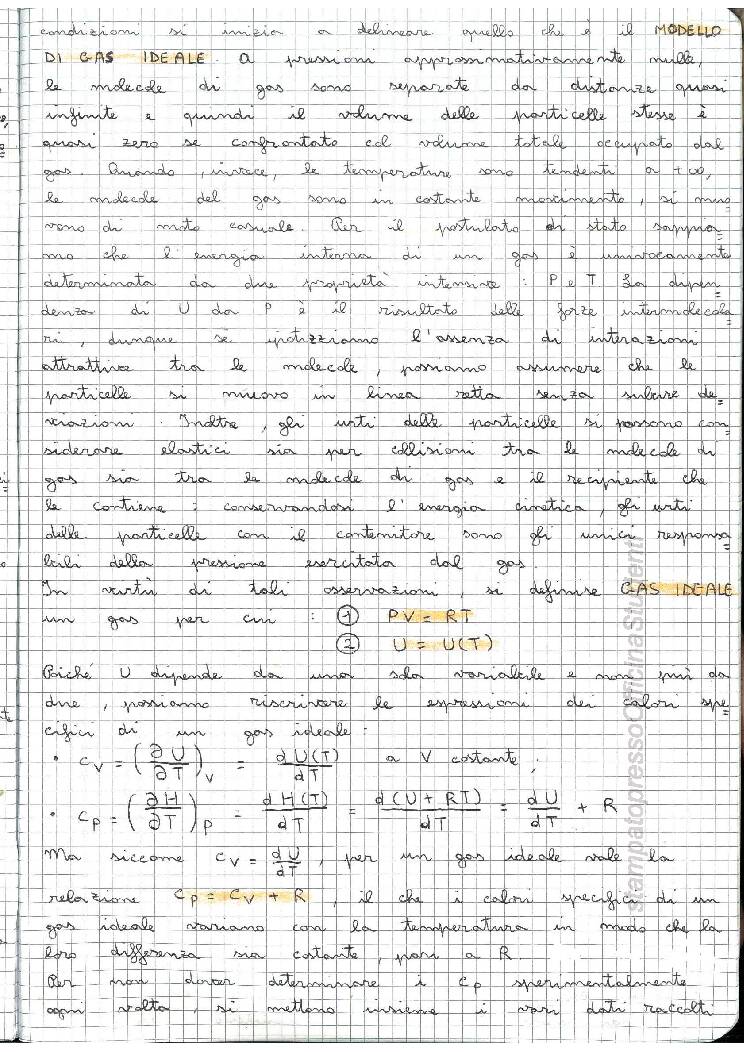 condizioni si inizia a delineare quello che è il MODELLO
DI GAS IDEALE. A pressioni approssimativamente nulle,
le molecole di gas sono separate da distanze quasi
infinite e quindi il volume delle particelle stesse è
quasi zero se confrontato col volume totale occupato dal
gas. Quando, invece, le temperature sono tendenti a +∞,
le molecole del gas sono in costante movimento, si muo=
vono di moto casuale. Per il postulato di stato sappia=
mo che l'energia interna di un gas è univocamente
determinata da due proprietà intensive: P e T. La dipen=
denza di U da P è il risultato delle forze intermolecola=
ri, dunque se ipotizziamo l'assenza di interazioni
attrattive tra le molecole, possiamo assumere che le
particelle si muovo in linea retta senza subire de=
viazioni. Inoltre, gli urti delle particelle si possono con=
siderare elastici sia per collisioni tra le molecole di
gas sia tra le molecole di gas e il recipiente che
le contiene: conservandosi l'energia cinetica, gli urti
delle particelle con il contenitore sono gli unici responsa=
bili della pressione esercitata dal gas.
In virtù di tali osservazioni, si definise GAS IDEALE
un gas per cui : ① PV = RT
② U = U(T)
Poiché U dipende da una sola variabile e non più da
due, possiamo riscrivere le espressioni dei calori spe=
cifici di un gas ideale:
• Cv = (∂U/∂T)v = dU(T)/dT a V costante;
• Cp = (∂H/∂T)p = dH(T)/dT = d(U + RT)/dT = dU/dT + R
Ma siccome Cv = dU/dT, per un gas ideale vale la
relazione Cp = Cv + R, il che i calori specifici di un
gas ideale variano con la temperatura in modo che la
loro differenza sia costante, pari a R.
Per non dover determinare i Cp sperimentalmente
ogni volta, si mettono insieme i vari dati raccolti
stampatopressoOfficinaStudenti